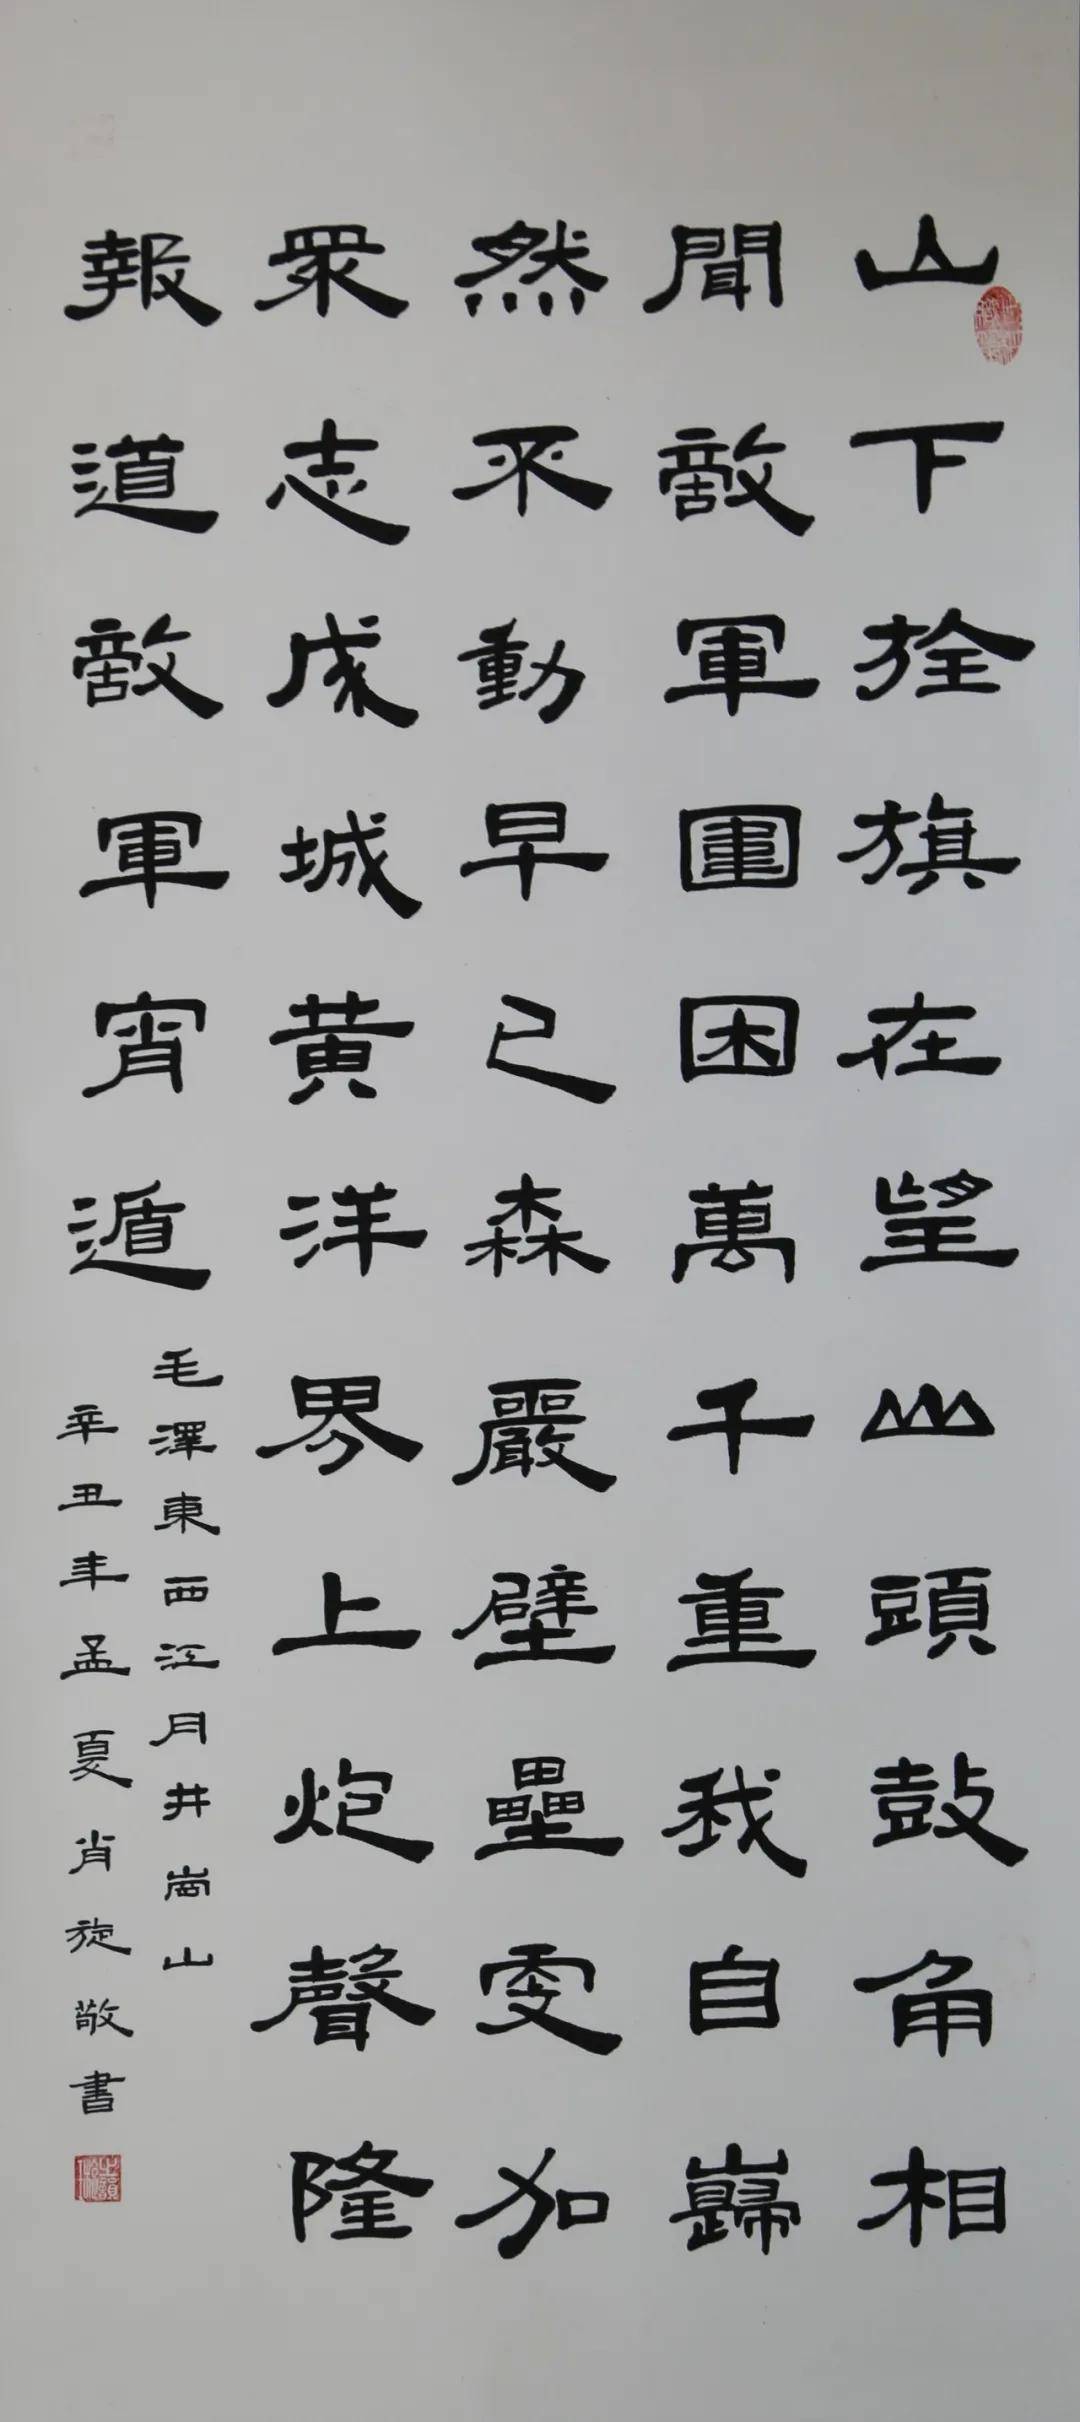 山下拴旗在望山頭鼓角相
聞敵軍圍困萬千重我自巋
然不動早已森嚴壁壘更加
眾志成城黃洋界上炮聲隆
報道敵軍宵遁
毛澤東西江月井崗山
辛丑年孟夏肖旋敬書